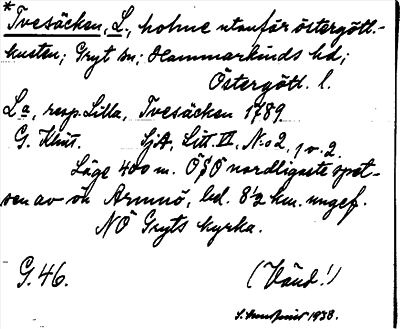 * Tvesäcken, L., holme utanför östergötl.-
kusten; Gryt sn; Hammarkinds hd;
Östergötl. l.
La, resp. Lilla, Tvesäcken 1789.
G. Khut. SjA, Litt. VI, N:o 2, 1 o. 2.
Läge 400 m. ÖSÖ nordligaste spet-
sen av ön Armnö, bel. 8½ km. ungef.
NÖ Gryts kyrka.
G. 46. (Vänd!)
1938.